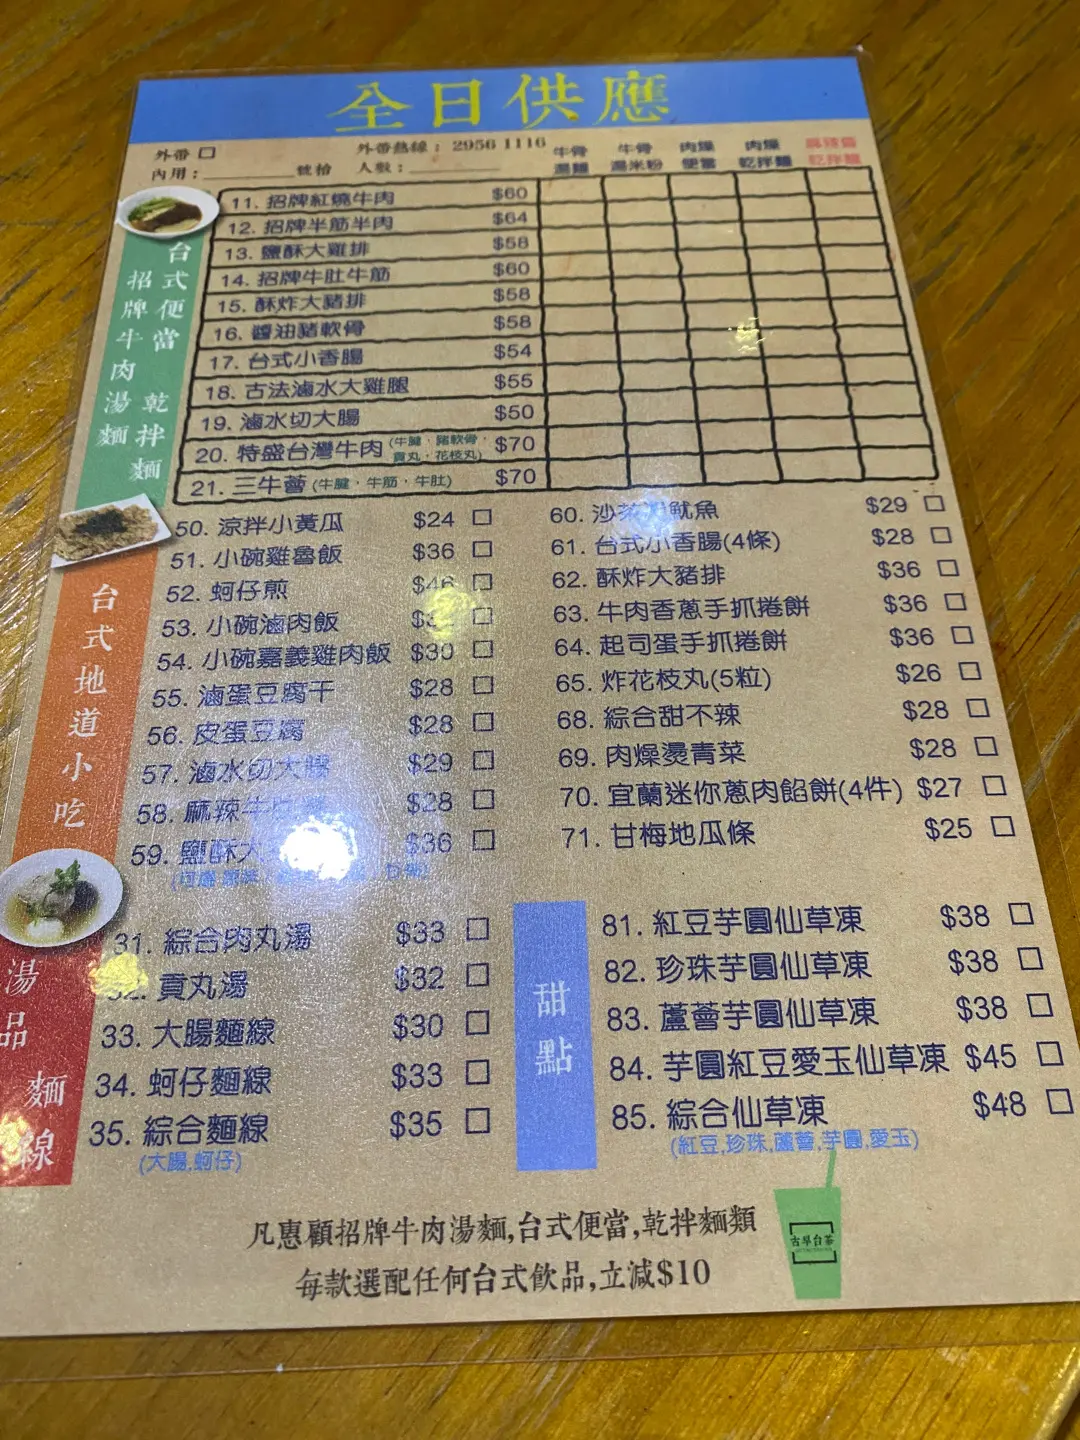 全日供應
外帶 □ 外帶熱線： 2956 1116
內用：________號枱 人數：________
牛骨湯麵 牛骨湯米粉 肉燥便當 肉燥乾拌麵 乾拌麵
台式便當 乾拌麵
招牌牛肉湯麵
11. 招牌紅燒牛肉 $60
12. 招牌半筋半肉 $64
13. 鹽酥大雞排 $58
14. 招牌牛肚牛筋 $60
15. 酥炸大豬排 $58
16. 醬油豬軟骨 $58
17. 台式小香腸 $54
18. 古法滷水大雞腿 $55
19. 滷水切大腸 $50
20. 特盛台灣牛肉 (牛腱．豬軟骨．貢丸．花枝丸) $70
21. 三牛薈 (牛腱．牛筋．牛肚) $70
台式地道小吃
50. 涼拌小黃瓜 $24 □
51. 小碗雞魯飯 $36 □
52. 蚵仔煎 $46 □
53. 小碗滷肉飯 □
54. 小碗嘉義雞肉飯 $30 □
55. 滷蛋豆腐干 $28 □
56. 皮蛋豆腐 $28 □
57. 滷水切大腸 $29 □
58. 麻辣牛 $28 □
59. 鹽酥大 $36 □
60. 沙茶 魷魚 $29 □
61. 台式小香腸(4條) $28 □
62. 酥炸大豬排 $36 □
63. 牛肉香蔥手抓捲餅 $36 □
64. 起司蛋手抓捲餅 $36 □
65. 炸花枝丸(5粒) $26 □
68. 綜合甜不辣 $28 □
69. 肉燥燙青菜 $28 □
70. 宜蘭迷你蔥肉餡餅(4件) $27 □
71. 甘梅地瓜條 $25 □
湯品 麵線
31. 綜合肉丸湯 $33 □
貢丸湯 $32 □
33. 大腸麵線 $30 □
34. 蚵仔麵線 $33 □
35. 綜合麵線 $35 □
(大腸,蚵仔)
甜點
81. 紅豆芋圓仙草凍 $38 □
82. 珍珠芋圓仙草凍 $38 □
83. 蘆薈芋圓仙草凍 $38 □
84. 芋圓紅豆愛玉仙草凍 $45 □
85. 綜合仙草凍 $48 □
(紅豆,珍珠,蘆薈,芋圓,愛玉)
凡惠顧招牌牛肉湯麵,台式便當,乾拌麵類
每款選配任何台式飲品,立減$10
古早台茶